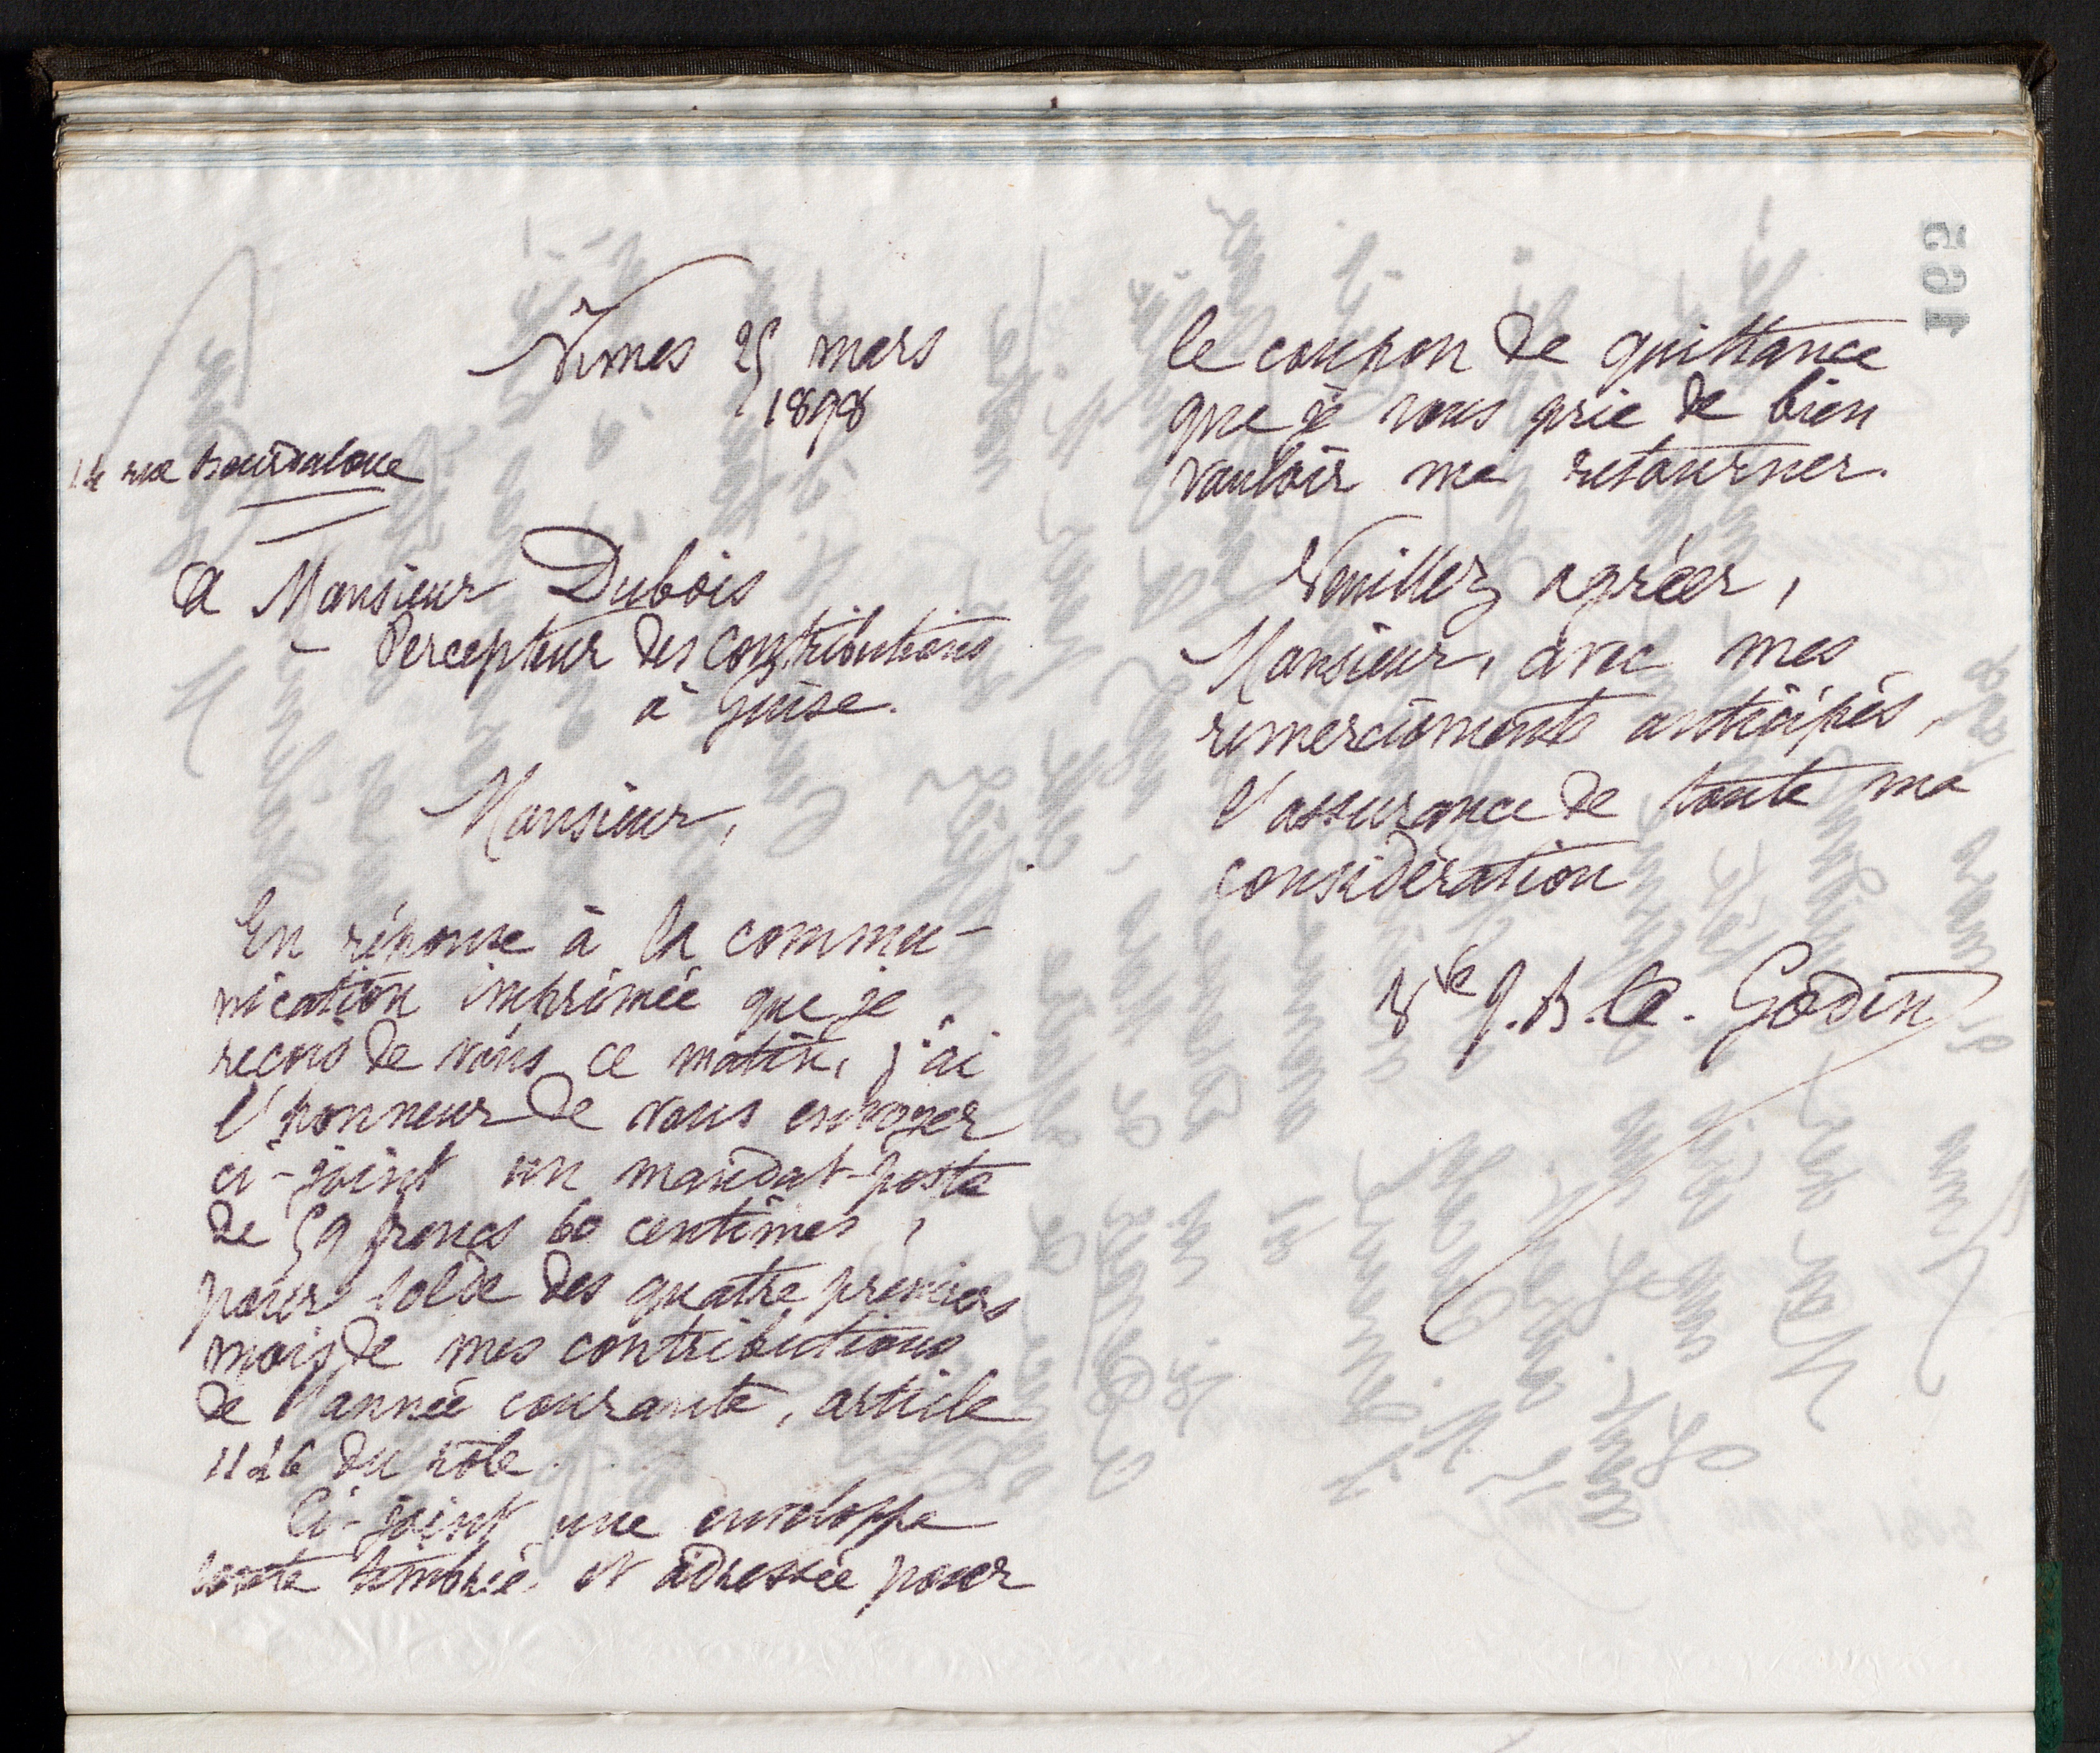 Nîmes 25 mars
1898
14 rue Bourdaloue
A Monsieur Dubois
Percepteur des Contributions
à Guise.
Monsieur,
En réponse à la commu-
nication imprimée que je
reçois de vous ce matin, j'ai
l'honneur de vous envoyer
ci-joint un mandat-poste
de 59 francs 60 centimes,
pour solde des quatre premiers
mois de mes contributions
de l'année courante, article
1126 du rôle.
Ci-joint une enveloppe
toute timbrée et adressée pour
165
le coupon de quittance
que je vous prie de bien
vouloir me retourner.
Veuillez agréer,
Monsieur, avec mes
remerciements anticipés,
l'assurance de toute ma
considération
Vve J. B. te. Godin